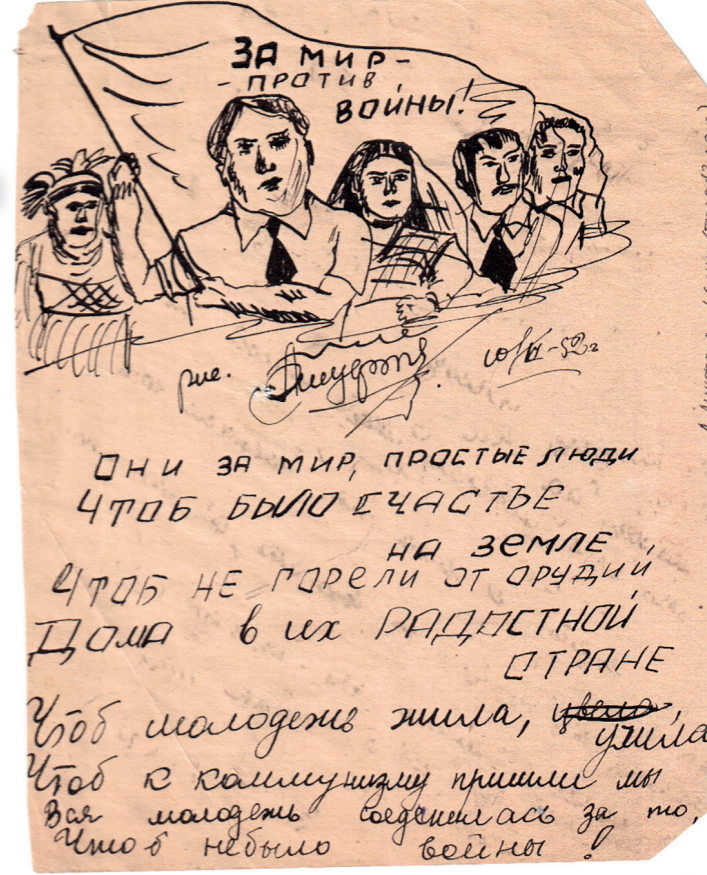 ЗА МИР -
- ПРОТИВ
ВОЙНЫ!
рис.
Они за мир, простые люди
Чтоб было счастье
на земле,
Чтоб не горели от орудий
Дома в их радостной
стране
Чтоб молодежь жила,
Чтоб к коммунизму пришли мы
Вся молодежь соеденилась за то,
Чтоб небыло войны!